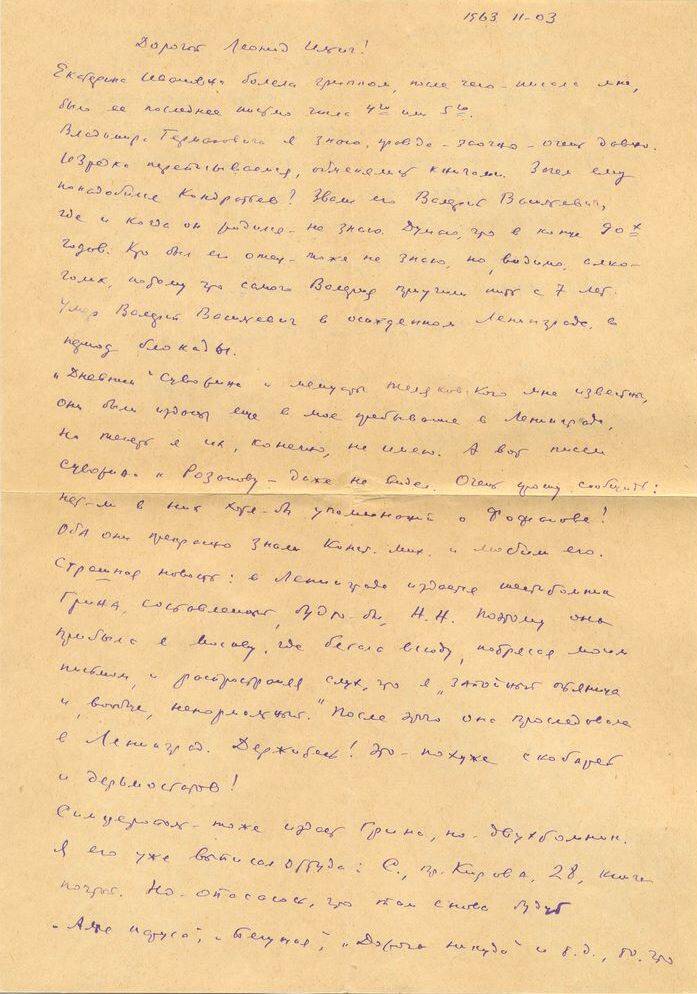 1963 11-03
Дорогой Леонид Ильич!
Екатерина Ивановна болела гриппом, после чего - писала мне,
было ее последнее письмо числа 4го или 5го.
Владимира Германовича я знаю, правда - заочно - очень давно.
Изредка переписываемся, обмениваемся книгами. Зачем ему
понадобился Кондратьев? Звали его Валерий Васильевич,
где и когда он родился - не знаю. Думаю, что в конце 90х
годов. Кто был его отец - тоже не знаю, но, видимо, алко-
голик, потому что самого Валерия приучили пить с 7 лет.
Умер Валерий Васильевич в осажденном Ленинграде, в
период блокады.
„Дневник" Суворина и мемуары Теляковского мне известны,
они были изданы еще в мое пребывание в Ленинграде,
но теперь я их, конечно, не имею. А вот писем
Суворина к Розанову - даже не видел. Очень прошу сообщить:
нет-ли в них хотя-бы упоминаний о Фофанове!
Оба они прекрасно знали Конст. Мих. и любили его.
Страшная новость: в Ленинграде издается шеститомник
Грина, составляемый, будто-бы, Н.Н. Поэтому она
прибыла в Москву, где бегала всюду, потрясая моим
письмом, и распространяя слух, что я „запойный пьяница
и, вообще, ненормальный." После этого она проследовала
в Ленинград. Держитесь! Это - похуже скобарей
и дерьмостаров!
Симферополь - тоже издает Грина, но - двухтомник.
Я его уже выписал оттуда: С., пр. Кирова, 28, книга
почтой. Но - опасаюсь, что там снова будут
„Алые паруса", „Бегущая", „Дорога никуда" и т.д., то, что